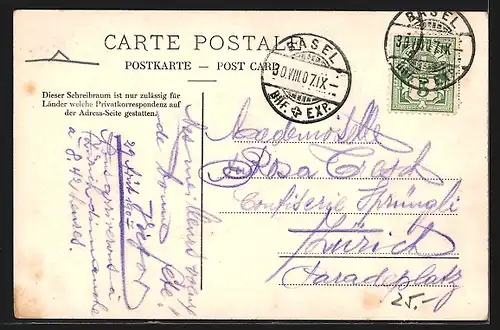 CARTE POSTALE
POSTKARTE — POST CARD
Dieser Schreibraum ist nur zulässig für
Länder welche Privatkorrespondenz auf
der Adress-Seite gestatten.
BASEL
30.VIII.07.IX–
BHF. EXP.
BASEL
30.VIII.07.IX
5
Mademoiselle
Rosa
Confiserie Sprüngli
Zürich
Paradeplatz
25.-
Mes meilleurs vœux
de bonne fête!
29 Août
à 8.42 heures.